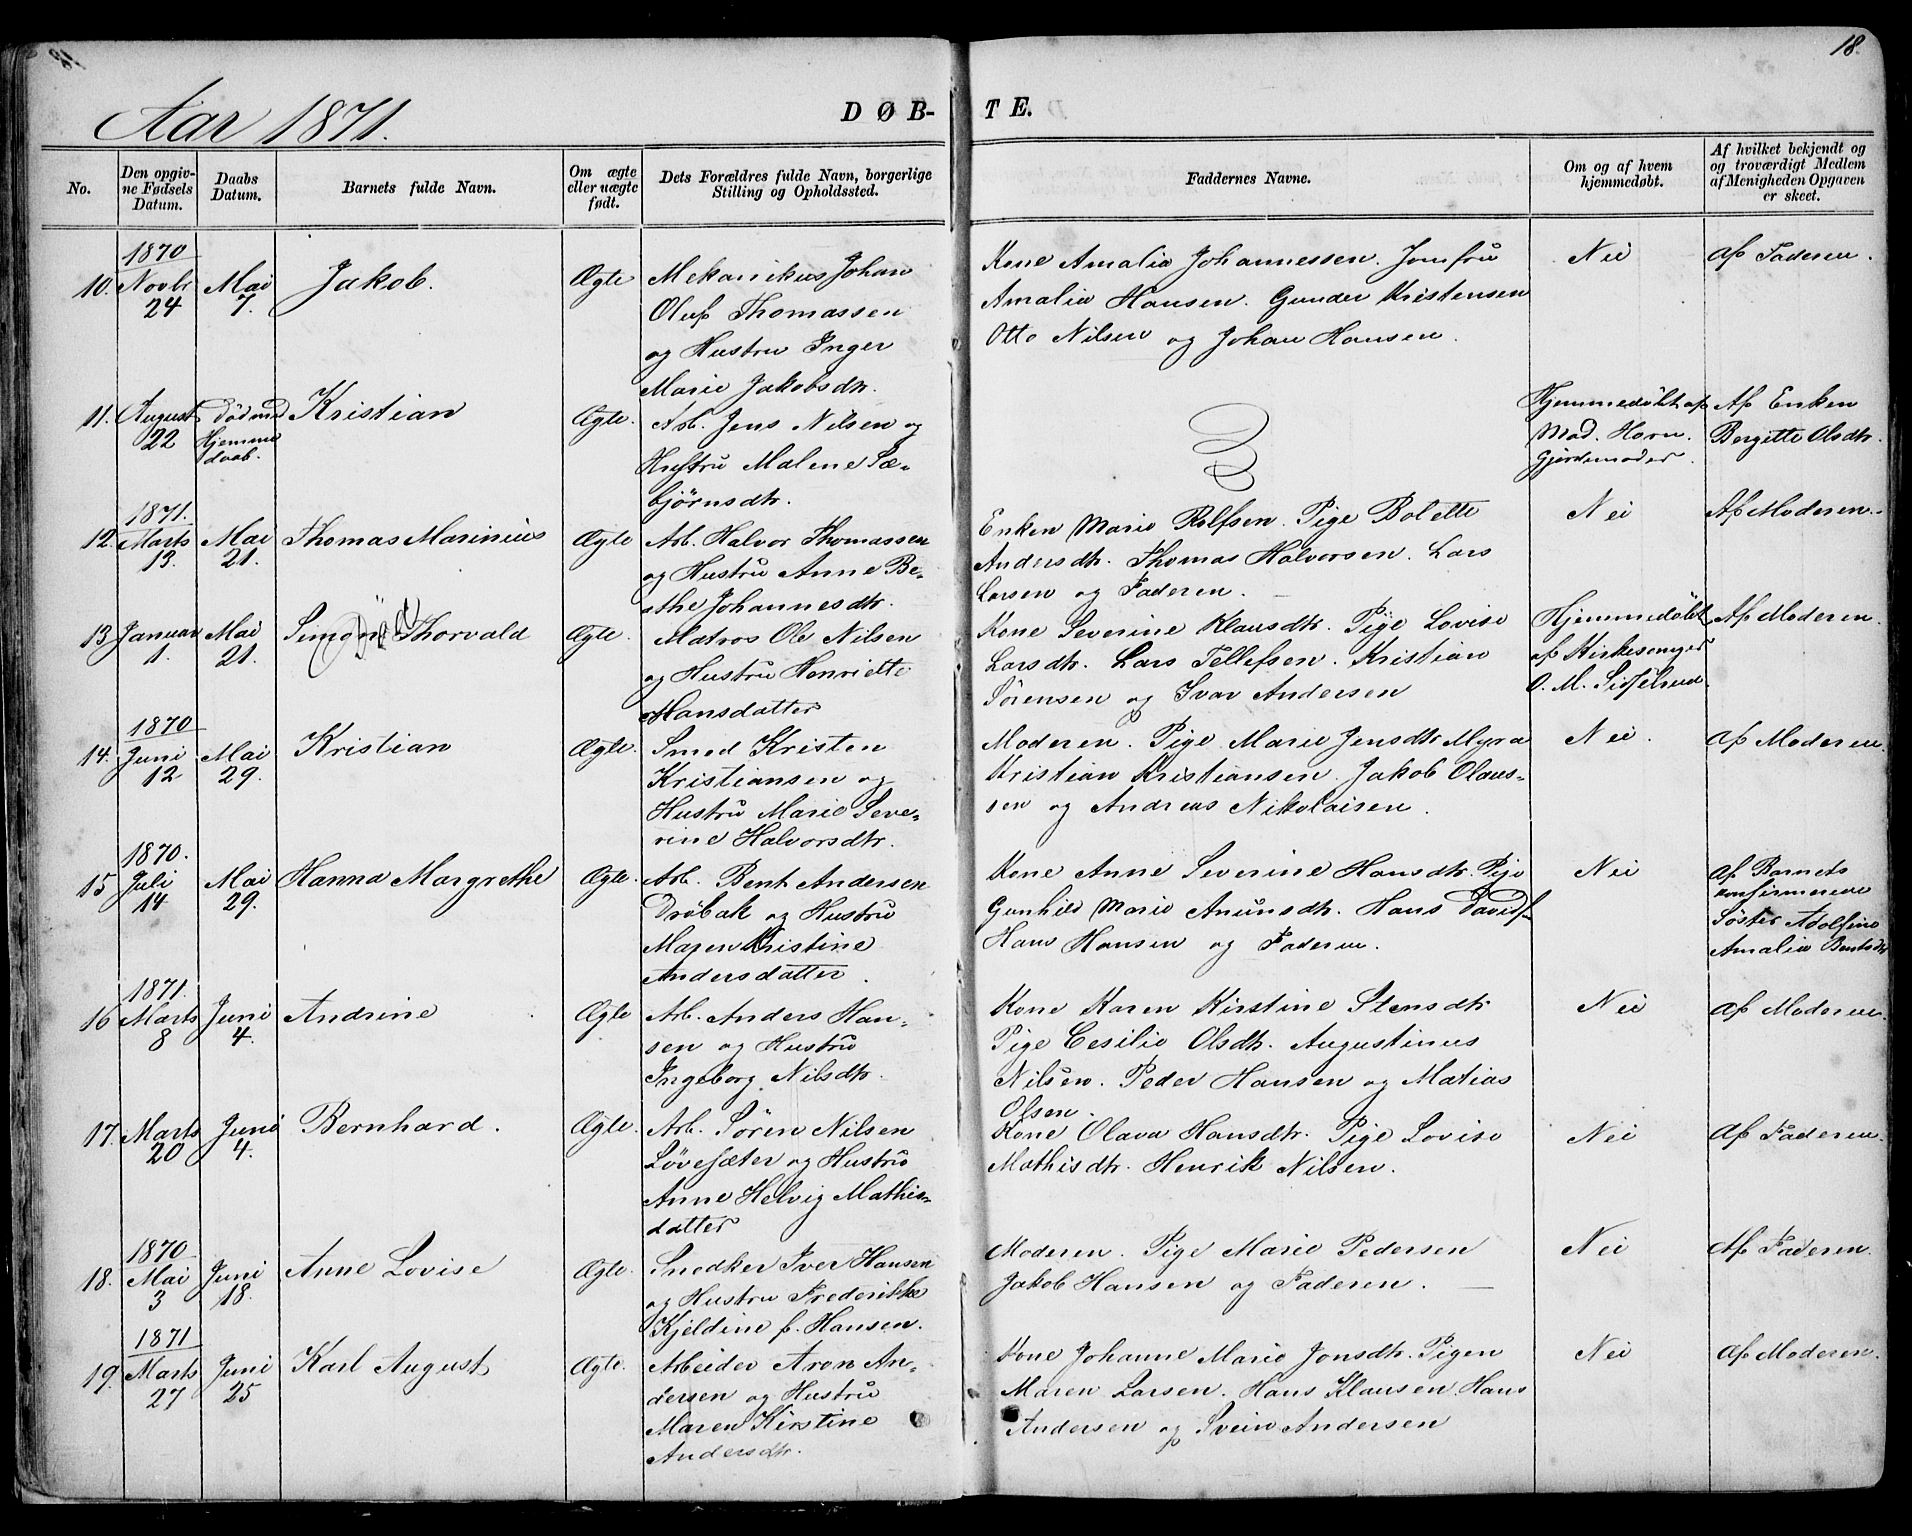 18.
Aar 1871.
DØB-
TE.
No.
Den opgiv-
ne Fødsels
Datum.
Daabs
Datum.
Barnets fulde Navn.
Om ægte
eller uægte
født.
Dets Forældres fulde Navn, borgerlige
Stilling og Opholdssted.
Faddernes Navne.
Om og af hvem
hjemmedøbt.
Af hvilket bekjendt og
og troværdigt Medlem
af Menigheden Opgaven
er skeet.
1870
10. Novbr 24
Mai 7.
Jakob.
Ægte
Mekanikus Johan
Oluf Thomassen
og Hustru Inger
Marie Jakobsdtr.
Kone Amalia Johannessen. Jomfru
Amalia Hansen. Gunder Kristensen
Otto Nilsen og Johan Hansen.
Nei
Af Faderen.
11. August 22
Død med
Hjemme
daab.
Kristian
Ægte.
Arb. Jens Nilsen og
Hustru Malene Sæ-
bjørnsdtr.
Hjemmedøbt af
Mad. Horn.
Gjordemoder.
Af Enken
Bergitte Olsdtr.
1871.
12. Marts 13.
Mai 21.
Thomas Marinius
Ægte
Arb. Halvor Thomassen
og Hustru Anne Be-
athe Johannesdtr.
Enken Marie Rolfsen. Pige Bolette
Andersdtr. Thomas Halvorsen. Lars
Larsen og Faderen.
Nei
Af Moderen.
13. Januar 1.
Mai 21.
Simon Thorvald
Død
Ægte.
Matros Ole Nilsen
og Hustru Henriette
Hansdatter
Kone Severine Klausdtr. Pige Lovise
Larsdtr. Lars Tellefsen. Kristian
Sørensen og Ivar Andersen
Hjemmedøbt
af Kirkesanger
O. M.
Af Moderen.
1870
14. Juni 12
Mai 29.
Kristian
Ægte.
Smed Kristen
Kristiansen og
Hustru Marie Seve-
rine Halvorsdtr.
Moderen. Pige Marie Jensdtr Myra
Kristian Kristiansen. Jakob Olaus-
sen og Andreas Nikolaisen.
Nei.
Af Moderen.
1870.
15 Juli 14
Mai 29.
Hanna Margrethe
Ægte.
Arb. Bent Andersen
Drøbak og Hustru
Maren Kristine
Andersdatter.
Kone Anne Severine Hansdtr. Pige
Gunhild Marie Anunsdtr. Hans Davids.
Hans Hansen og Faderen.
Nei
Af Barnets
konfirmerede
Søster Adolfine
Amalia Bentsdtr
1871.
16 Marts 8
Juni 4.
Andrine
Ægte
Arb. Anders Han-
sen og Hustru
Ingeborg Nilsdtr.
Kone Karen Kirstine Stensdtr
Pige Cesilie Olsdtr. Augustinus
Nilsen. Peder Hansen og Matias
Olsen.
Nei
Af Moderen.
17. Marts 20
Juni 4.
Bernhard.
Ægte.
Arb. Søren Nilsen
Løvesæter og Hustru
Anne Helvig Mathis-
datter
Kone Olava Hansdtr. Pige Lovise
Mathisdtr. Henrik Nilsen.
Nei
Af Faderen.
1870
18. Mai 3
Juni 18.
Anne Lovise
Ægte.
Snedker Iver Hansen
og Hustru Frederikke
Kjeldine f. Hansen.
Moderen. Pige Marie Pedersen
Jakob Hansen og Faderen.
Nei
Af Faderen.
1871
19. Marts 27
Juni 25
Karl August
Ægte.
Arbeider Aron An-
dersen og Hustru
Maren Kirstine
Andersdtr.
Kone Johanne Marie Jonsdtr. Pigen
Maren Larsen. Hans Klausen. Hans
Andersen og Svein Andersen
Nei
Af Moderen.